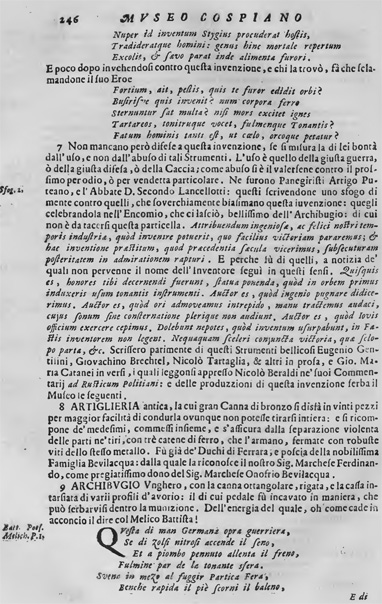 246 MVSEO COSPIANO
Nuper id inventum Stygius procuderat hostis,
Tradideratque homini: genus hinc mortale repertum
Excolit, & sævo parat inde alimenta furori.
E poco dopo invehendosi contro questa invenzione, e chi la trovò, fà che scla-
mandone il suo Eroe
Fortium, ait, pestis, quis te furor edidit orbi?
Busirisve quis invenit? num corpora ferro
Sternuntur sat multa? nisi mors excitet ignes
Tartareos, tonitruque vocet, fulmenque Tonantis?
Fatum hominis tanti est, ut cœlo, orcoque petatur?
7 Non mancano però difese a questa invenzione, se si misura la di lei bontà
dall'uso, e non dall'abuso di tali Strumenti. L'uso è quello della giusta guerra,
ò della giusta difesa, ò della Caccia; come abuso fù è il valersene contro il pros-
simo per odio, ò per vendetta particolare. Ne furono Panegiristi Arrigo Pu-
Sfog. 2. teano, e l'Abbate D. Secondo Lancellotti: questi scrivendone uno sfogo di
mente contro quelli, che soverchiamente biasimano questa invenzione: quegli
celebrandola nell'Encomio, che ci lasciò, bellissimo dell'Archibugio: di cui
non è da tacersi questa particella. Attribuendum ingeniosæ, ac felici nostri tem-
poris industriæ, quòd invenire potuerit, quo facilius victoriam pararemus; &
hac inventione præstitum, quod præcedentia sæcula vicerimus, subsecuturam
posteritatem in admirationem rapturi. E perche fù di quelli, a notizia de'
quali non pervenne il nome dell'Inventore seguì in questi sensi. Quisquis
es, honores tibi decernendi fuerunt, statua ponenda, quòd in orbem primus
induxeris usum tonantis instrumenti. Auctor es, quòd ingenio pugnare didice-
rimus. Auctor es, quòd ori admoveamus intrepido, manu tractemus audaci,
cujus sonum sine consternatione plerique non audiunt. Auctor es, quòd Iovis
officium exercere cepimus. Dolebunt nepotes, quòd inventum usurpabunt, in Fa-
stis inventorem non legent. Nequaquam sceleri conjuncta victoria, qua sclo-
po parta, &c. Scrissero parimente di questi Strumenti bellicosi Eugenio Gen-
tilini, Giovachino Brechtel, Nicolò Tartaglia, & altri in prosa, e Gio. Ma-
ria Catanei in versi, i quali leggonsi appresso Nicolò Beraldi ne' suoi Commen-
tarij ad Rusticum Politiani: e delle produzzioni di questa invenzione serba il
Museo le seguenti.
8 ARTIGLIERIA antica, la cui gran Canna di bronzo si disfà in vinti pezzi
per maggior facilità di condurla ovunque non potesse tirarsi intiera: e si ricom-
pone de' medesimi, commessi insieme, e s'assicura dalla separazione violenta
delle parti ne' tiri, con trè catene di ferro, che l'armano, fermate con robuste
viti dello stesso metallo. Fù già de' Duchi di Ferrara, e poscia della nobilissima
Famiglia Bevilacqua: dalla quale la riconosce il nostro Sig. Marchese Ferdinan-
do, come pregiatissimo dono del Sig. Marchese Onofrio Bevilacqua.
9 ARCHIBVGIO Vnghero, con la canna ottangolare, rigata, e la cassa in-
tarsiata di varii profili d'avorio: il di cui pedale fù incavato in maniera, che
può serbarvisi dentro la munizione. Dell'energia del quale, oh come cade in
acconcio il dire col Melico Battista!
Batt. Poes. Questa di man Germana opra guerriera,
Melich. p. 1. Se di zolfi nitrosi accende il seno,
Et a piombo pennuto allenta il freno,
Fulmine par de la tonante sfera.
Sveno in mezo al fuggir Partica Fera;
Benche rapida il piè scorni il baleno,
E di